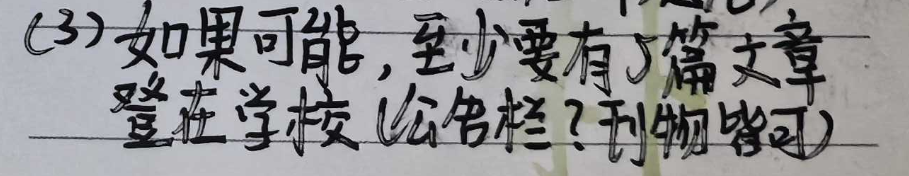 (3) 如果可能，至少要有5篇文章
登在学校（公告栏？刊物皆可）